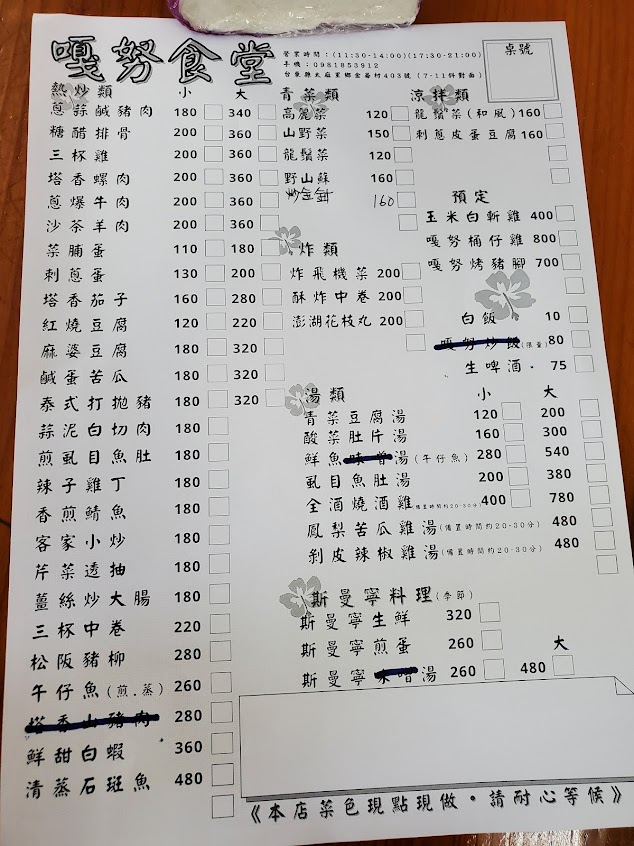 嘎努食堂
營業時間：(11:30-14:00)(17:30-21:00)
手機：0981853912
台東縣太麻里鄉金崙村403號 (7-11斜對面)
桌號
熱炒類 小 大
蔥蒜鹹豬肉 180 340
糖醋排骨 200 360
三杯雞 200 360
塔香螺肉 200 360
蔥爆牛肉 200 360
沙茶羊肉 200 360
菜脯蛋 110 180
刺蔥蛋 130 200
塔香茄子 160 280
紅燒豆腐 120 220
麻婆豆腐 180 320
鹹蛋苦瓜 180 320
泰式打拋豬 180 320
蒜泥白切肉 180
煎虱目魚肚 180
辣子雞丁 180
香煎鯖魚 180
客家小炒 180
芹菜透抽 180
薑絲炒大腸 180
三杯中卷 220
松阪豬柳 280
午仔魚(煎.蒸) 260
塔香山豬肉 280
鮮甜白蝦 360
清蒸石斑魚 480
青菜類
高麗菜 120
山野菜 150
龍鬚菜 120
野山蘇 160
160
炸類
炸飛機菜 200
酥炸中卷 200
澎湖花枝丸 200
涼拌類
龍鬚菜(和風) 160
刺蔥皮蛋豆腐 160
預定
玉米白斬雞 400
嘎努桶仔雞 800
嘎努烤豬腳 700
白飯 10
嘎努炒飯(限量) 80
生啤酒． 75
湯類 小 大
青菜豆腐湯 120 200
酸菜肚片湯 160 300
鮮魚味噌湯(午仔魚) 280 540
虱目魚肚湯 200 380
全酒燒酒雞(備置時間約20-30分) 400 780
鳳梨苦瓜雞湯(備置時間約20-30分) 480
剝皮辣椒雞湯(備置時間約20-30分) 480
斯曼寧料理(季節)
斯曼寧生鮮 320
斯曼寧煎蛋 260 大
斯曼寧味噌湯 260 480
《本店菜色現點現做。請耐心等候》